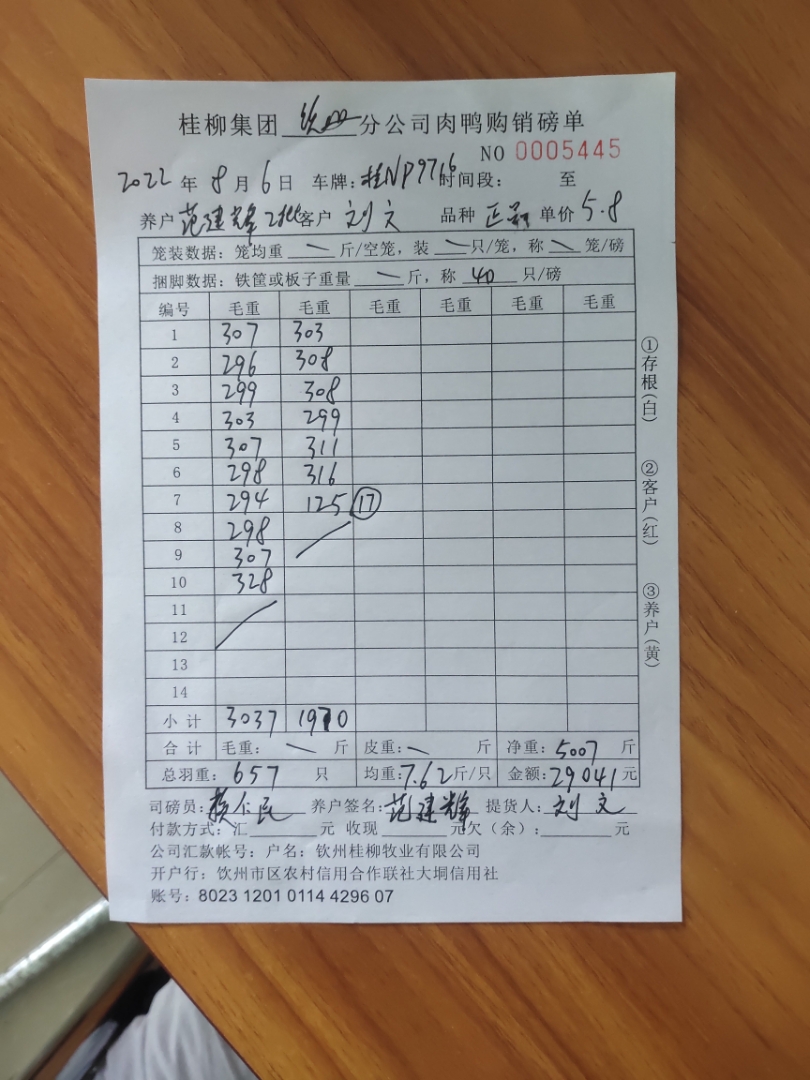 桂柳集团 钦州 分公司肉鸭购销磅单
NO 0005445
2022 年 8 月 6 日 车牌：桂NP9766 时间段： 至
养户 范建辉 2批 客户 刘文 品种 正品 单价 5.8
笼装数据：笼均重 — 斤/空笼，装 — 只/笼，称 — 笼/磅
捆脚数据：铁筐或板子重量 — 斤，称 40 只/磅
编号 毛重 毛重 毛重 毛重 毛重 毛重
1 307 303
2 296 308
3 299 308
4 303 299
5 307 311
6 298 316
7 294 125 17
8 298
9 307
10 328
11
12
13
14
小计 3037 1970
合计 毛重： — 斤 皮重： — 斤 净重：5007 斤
总羽重：657 只 均重：7.62 斤/只 金额：29041 元
司磅员： 养户签名：范建辉 提货人：刘文
付款方式：汇 元 收现 元欠（余）： 元
公司汇款帐号：户名：钦州桂柳牧业有限公司
开户行：钦州市区农村信用合作联社大垌信用社
账号：8023 1201 0114 4296 07
①存根（白）
②客户（红）
③养户（黄）